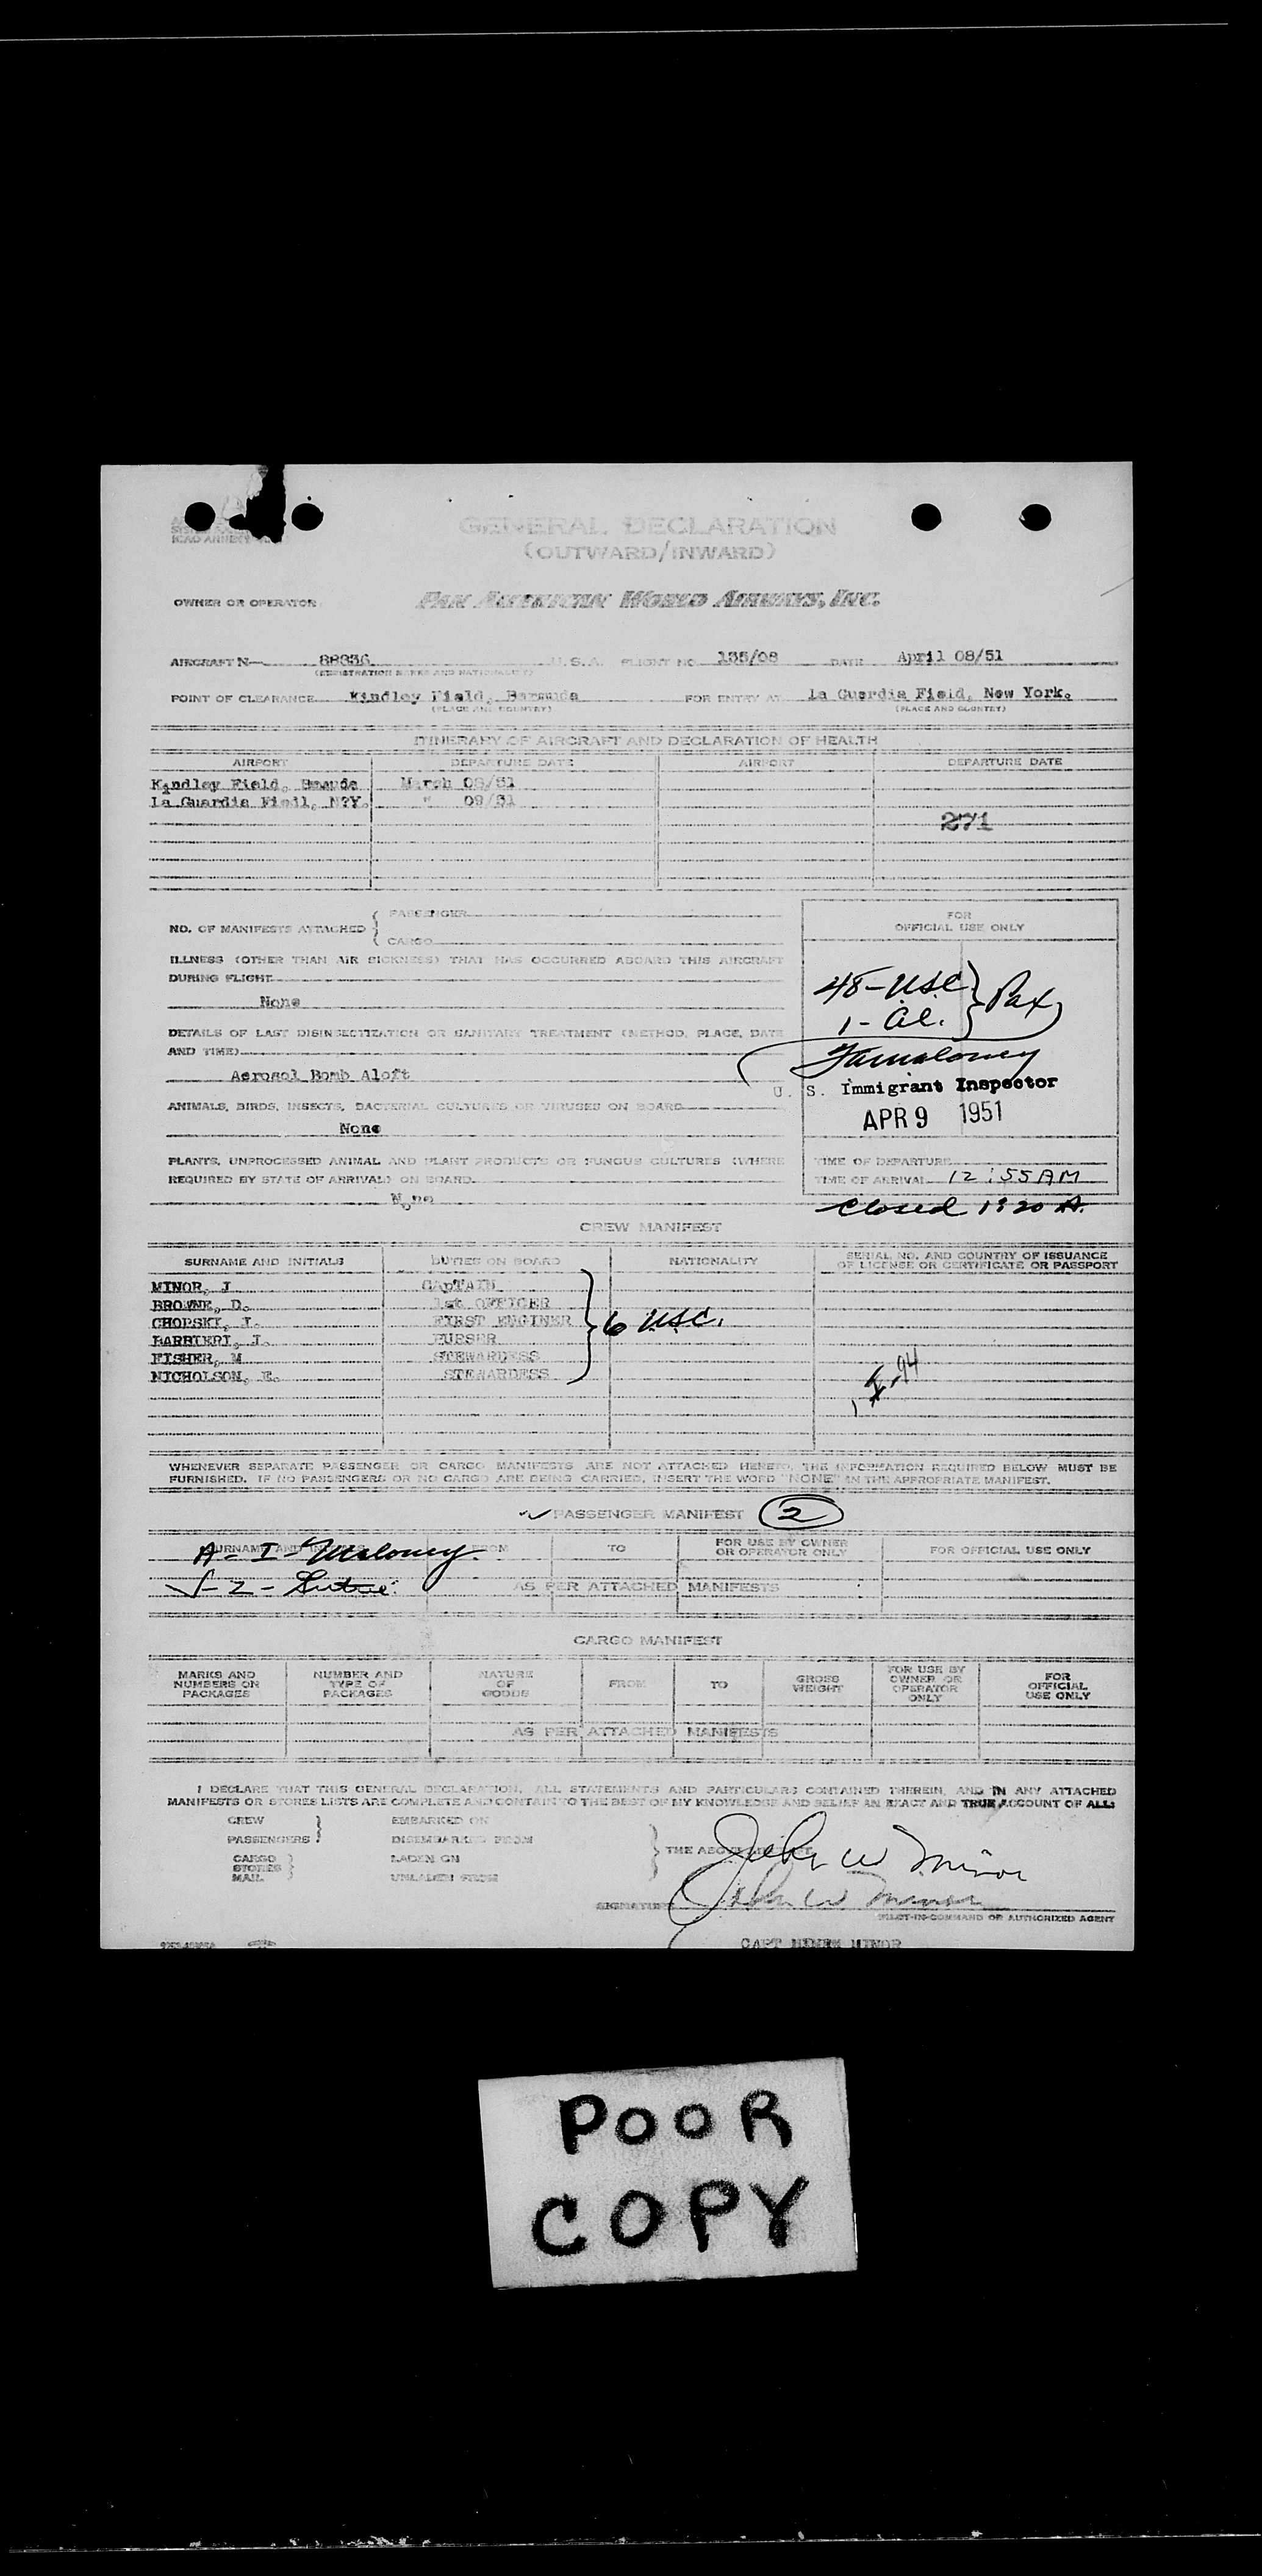 GENERAL DECLARATION
(OUTWARD/INWARD)
ICAO ANNEX
OWNER OR OPERATOR PAN AMERICAN WORLD AIRWAYS, INC.
AIRCRAFT N— 88836 U.S.A. FLIGHT NO. 135/08 DATE April 08/51
(REGISTRATION MARKS AND NATIONALITY)
POINT OF CLEARANCE Kindley Field, Bermuda FOR ENTRY AT La Guardia Field, New York.
(PLACE AND COUNTRY) (PLACE AND COUNTRY)
ITINERARY OF AIRCRAFT AND DECLARATION OF HEALTH
AIRPORT DEPARTURE DATE AIRPORT DEPARTURE DATE
Kindley Field, March 08/51
La Guardia N?Y. " 09/51
271
NO. OF MANIFESTS ATTACHED { PASSENGER
CARGO
FOR
OFFICIAL USE ONLY
ILLNESS (OTHER THAN AIR SICKNESS) THAT HAS OCCURRED ABOARD THIS AIRCRAFT
DURING FLIGHT
None
48-USC } Pax
1-Al.
DETAILS OF LAST DISINSECTIZATION OR SANITARY TREATMENT (METHOD, PLACE, DATE
AND TIME)
Aerosol Bomb Aloft
U. S. Immigrant Inspector
APR 9 1951
ANIMALS, BIRDS, INSECTS, BACTERIAL CULTURES OR VIRUSES ON BOARD
None
PLANTS, UNPROCESSED ANIMAL AND PLANT PRODUCTS OR FUNGUS CULTURES (WHERE
REQUIRED BY STATE OF ARRIVAL) ON BOARD
None
TIME OF DEPARTURE
TIME OF ARRIVAL 12:55 AM
Closed 1:20 A.
CREW MANIFEST
SURNAME AND INITIALS DUTIES ON BOARD NATIONALITY SERIAL NO. AND COUNTRY OF ISSUANCE
OF LICENSE OR CERTIFICATE OR PASSPORT
MINOR, J CAPTAIN
BROWNE, D. 1st OFFICER
CHORSKI, I. FIRST ENGINER } 6 USC.
BARBIERI, I. PURSER
FISHER, M STEWARDESS
NICHOLSON, E. STEWARDESS
1 I-94
WHENEVER SEPARATE PASSENGER OR CARGO MANIFESTS ARE NOT ATTACHED HERETO, THE INFORMATION REQUIRED BELOW MUST BE
FURNISHED. IF NO PASSENGERS OR NO CARGO ARE BEING CARRIED, INSERT THE WORD "NONE" IN THE APPROPRIATE MANIFEST.
PASSENGER MANIFEST 2
SURNAME AND INITIALS FROM TO FOR USE BY OWNER
OR OPERATOR ONLY FOR OFFICIAL USE ONLY
A- I- Maloney
AS PER ATTACHED MANIFESTS
CARGO MANIFEST
MARKS AND
NUMBERS ON
PACKAGES NUMBER AND
TYPE OF
PACKAGES NATURE
OF
GOODS FROM TO GROSS
WEIGHT FOR USE BY
OWNER OR
OPERATOR
ONLY FOR
OFFICIAL
USE ONLY
AS PER ATTACHED MANIFESTS
I DECLARE THAT THIS GENERAL DECLARATION, ALL STATEMENTS AND PARTICULARS CONTAINED THEREIN, AND IN ANY ATTACHED
MANIFESTS OR STORES LISTS ARE COMPLETE AND CONTAIN TO THE BEST OF MY KNOWLEDGE AND BELIEF AN EXACT AND TRUE ACCOUNT OF ALL:
CREW EMBARKED ON
PASSENGERS DISEMBARKED FROM
CARGO LADEN ON
STORES
MAIL UNLADEN FROM
THE ABOVE AIRCRAFT
John W Minor
SIGNATURE John W Minor
PILOT-IN-COMMAND OR AUTHORIZED AGENT
CAPT MINOR
POOR
COPY